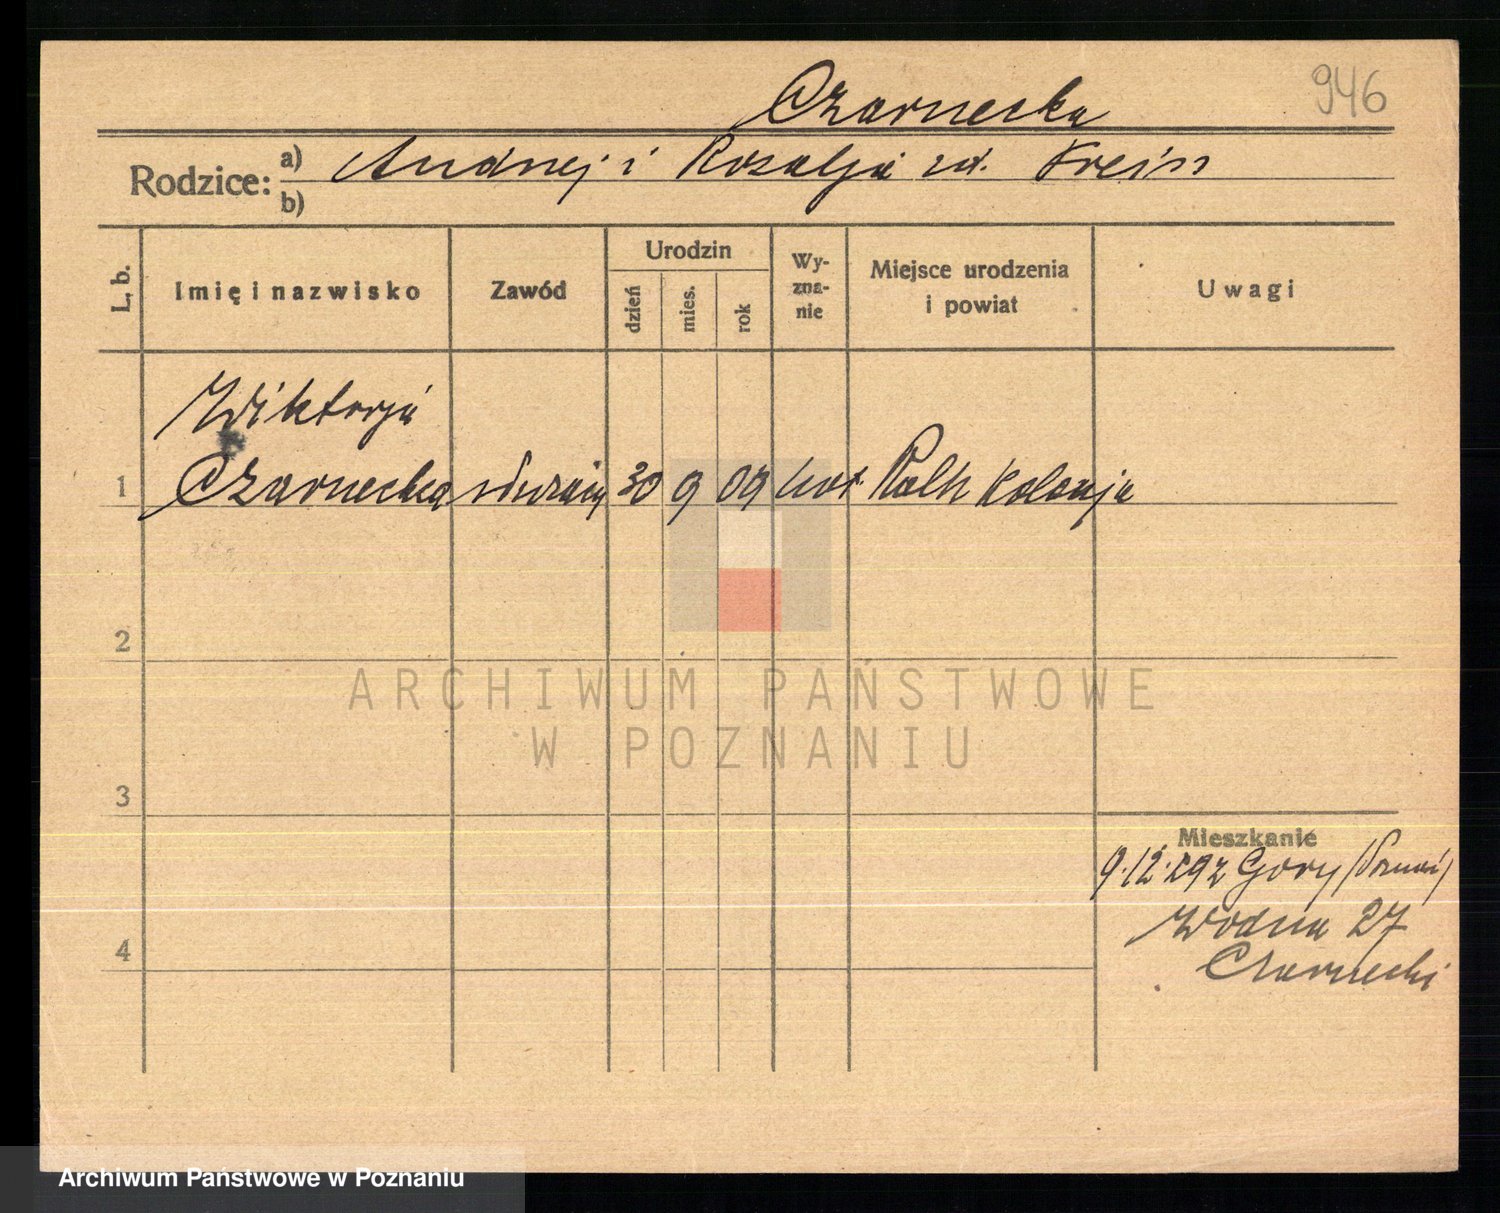 946
Czarnecka
Rodzice: a) Andrzej i Rozalja zd. Freiss
b)
L. b.
Imię i nazwisko
Zawód
Urodzin
dzień
mies.
rok
Wy-
zna-
nie
Miejsce urodzenia
i powiat
Uwagi
Wiktorja
1 Czarnecka służąca 30 9 09 kat. Kolonja
2
ARCHIWUM PAŃSTWOWE
W POZNANIU
3
Mieszkanie
9.12.29 z Góry
Wodna 27
Czarnecki
4
Archiwum Państwowe w Poznaniu